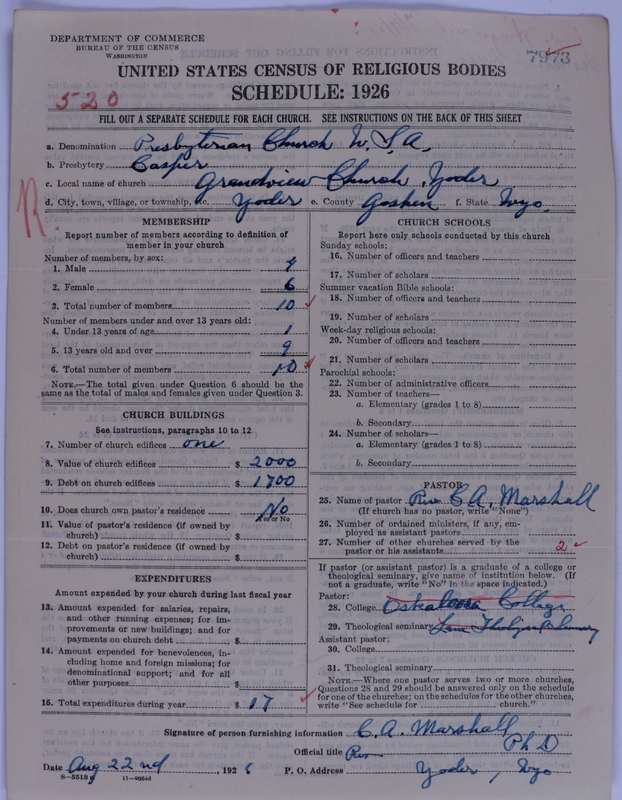 DEPARTMENT OF COMMERCE
BUREAU OF THE CENSUS
WASHINGTON
7973
UNITED STATES CENSUS OF RELIGIOUS BODIES
SCHEDULE: 1926
520
FILL OUT A SEPARATE SCHEDULE FOR EACH CHURCH. SEE INSTRUCTIONS ON THE BACK OF THIS SHEET
a. Denomination Presbyterian Church U.S.A.
b. Presbytery Casper
c. Local name of church Grandview Church, Yoder
d. City, town, village, or township, etc. Yoder e. County Goshen f. State Wyo.
R.
MEMBERSHIP
Report number of members according to definition of
member in your church
Number of members, by sex:
1. Male 4
2. Female 6
3. Total number of members 10
Number of members under and over 13 years old:
4. Under 13 years of age 1
5. 13 years old and over 9
6. Total number of members 10
NOTE.—The total given under Question 6 should be the
same as the total of males and females given under Question 3.
CHURCH BUILDINGS
See instructions, paragraphs 10 to 12
7. Number of church edifices one
8. Value of church edifices $ 2000
9. Debt on church edifices $ 1700
10. Does church own pastor's residence No
Yes or No
11. Value of pastor's residence (if owned by
church) $
12. Debt on pastor's residence (if owned by
church) $
EXPENDITURES
Amount expended by your church during last fiscal year
13. Amount expended for salaries, repairs,
and other running expenses; for im-
provements or new buildings; and for
payments on church debt $
14. Amount expended for benevolences, in-
cluding home and foreign missions; for
denominational support; and for all
other purposes $
15. Total expenditures during year $ 17
CHURCH SCHOOLS
Report here only schools conducted by this church
Sunday schools:
16. Number of officers and teachers
17. Number of scholars
Summer vacation Bible schools:
18. Number of officers and teachers
19. Number of scholars
Week-day religious schools:
20. Number of officers and teachers
21. Number of scholars
Parochial schools:
22. Number of administrative officers
23. Number of teachers—
a. Elementary (grades 1 to 8)
b. Secondary
24. Number of scholars—
a. Elementary (grades 1 to 8)
b. Secondary
PASTOR
25. Name of pastor Rev C.A. Marshall
(If church has no pastor, write "None")
26. Number of ordained ministers, if any, em-
ployed as assistant pastors
27. Number of other churches served by the
pastor or his assistants 2
If pastor (or assistant pastor) is a graduate of a college or
theological seminary, give name of institution below. (If
not a graduate, write "No" in the space indicated.)
Pastor:
28. College Oskaloosa College
29. Theological seminary Lane
Assistant pastor:
30. College
31. Theological seminary
NOTE.—Where one pastor serves two or more churches,
Questions 28 and 29 should be answered only on the schedule
for one of the churches; on the schedules for the other churches,
write "See schedule for church."
Signature of person furnishing information C.A. Marshall
Official title Rev Ph D
Date Aug 22nd, 1926 P. O. Address Yoder, Wyo